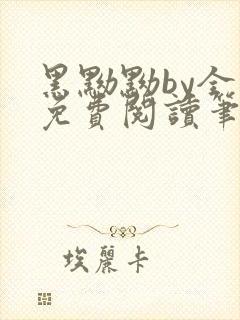 黑黝黝by全
免費閱讀筆
埃麗卡